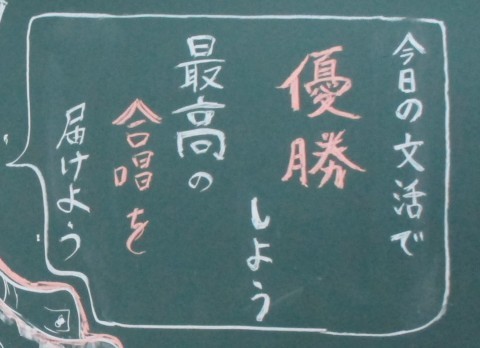 今日の文活で
優勝
しよう
最高の
合唱を
届けよう